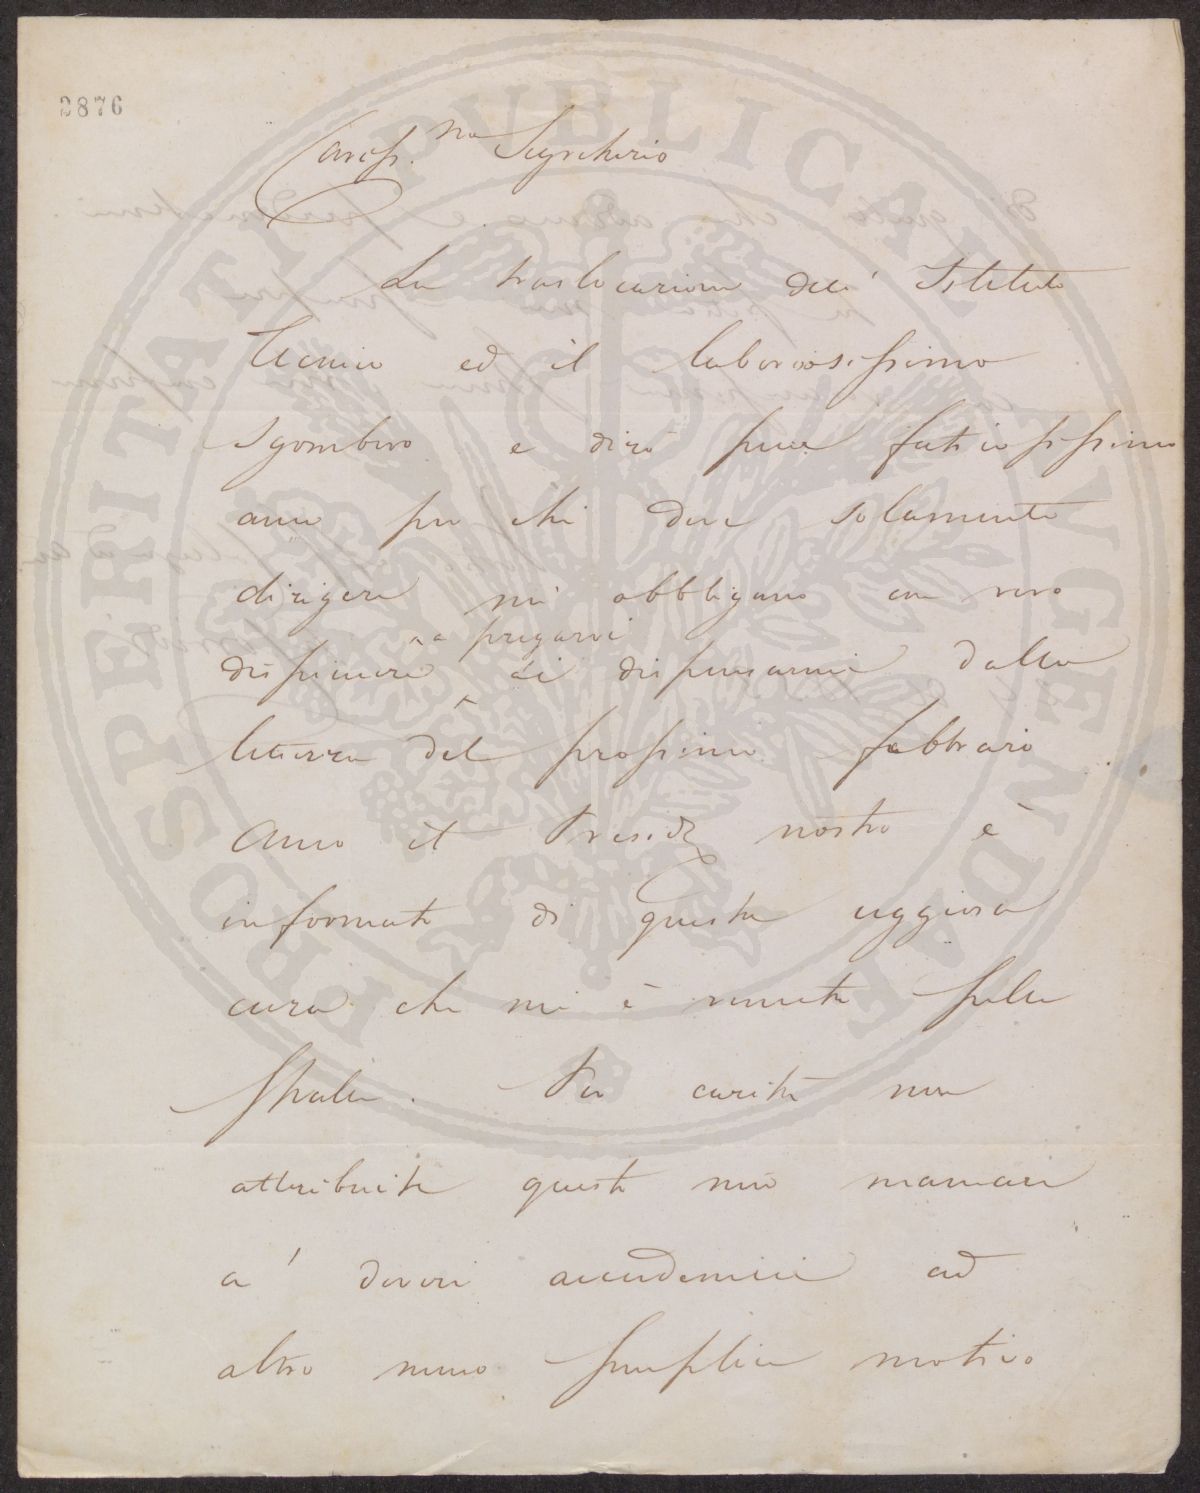 2876
Cariss.mo Segretario
La traslocazione dell' Istituto
Tecnico ed il laboriosissimo
sgombero e dirò pure faticosissimo
anco per chi deve solamente
dirigere mi obbligano con vero
dispiacere a pregarvi di dispensarmi dalla
lettura del prossimo febbraio
Anco il Preside nostro è
informato di questa uggiosa
cura che mi è venuta sulle
spalle. Per carità non
attribuite questo mio mancare
a' doveri accademici ad
altro meno semplice motivo
PROSPERITATI PVBLICAE AVGENDAE